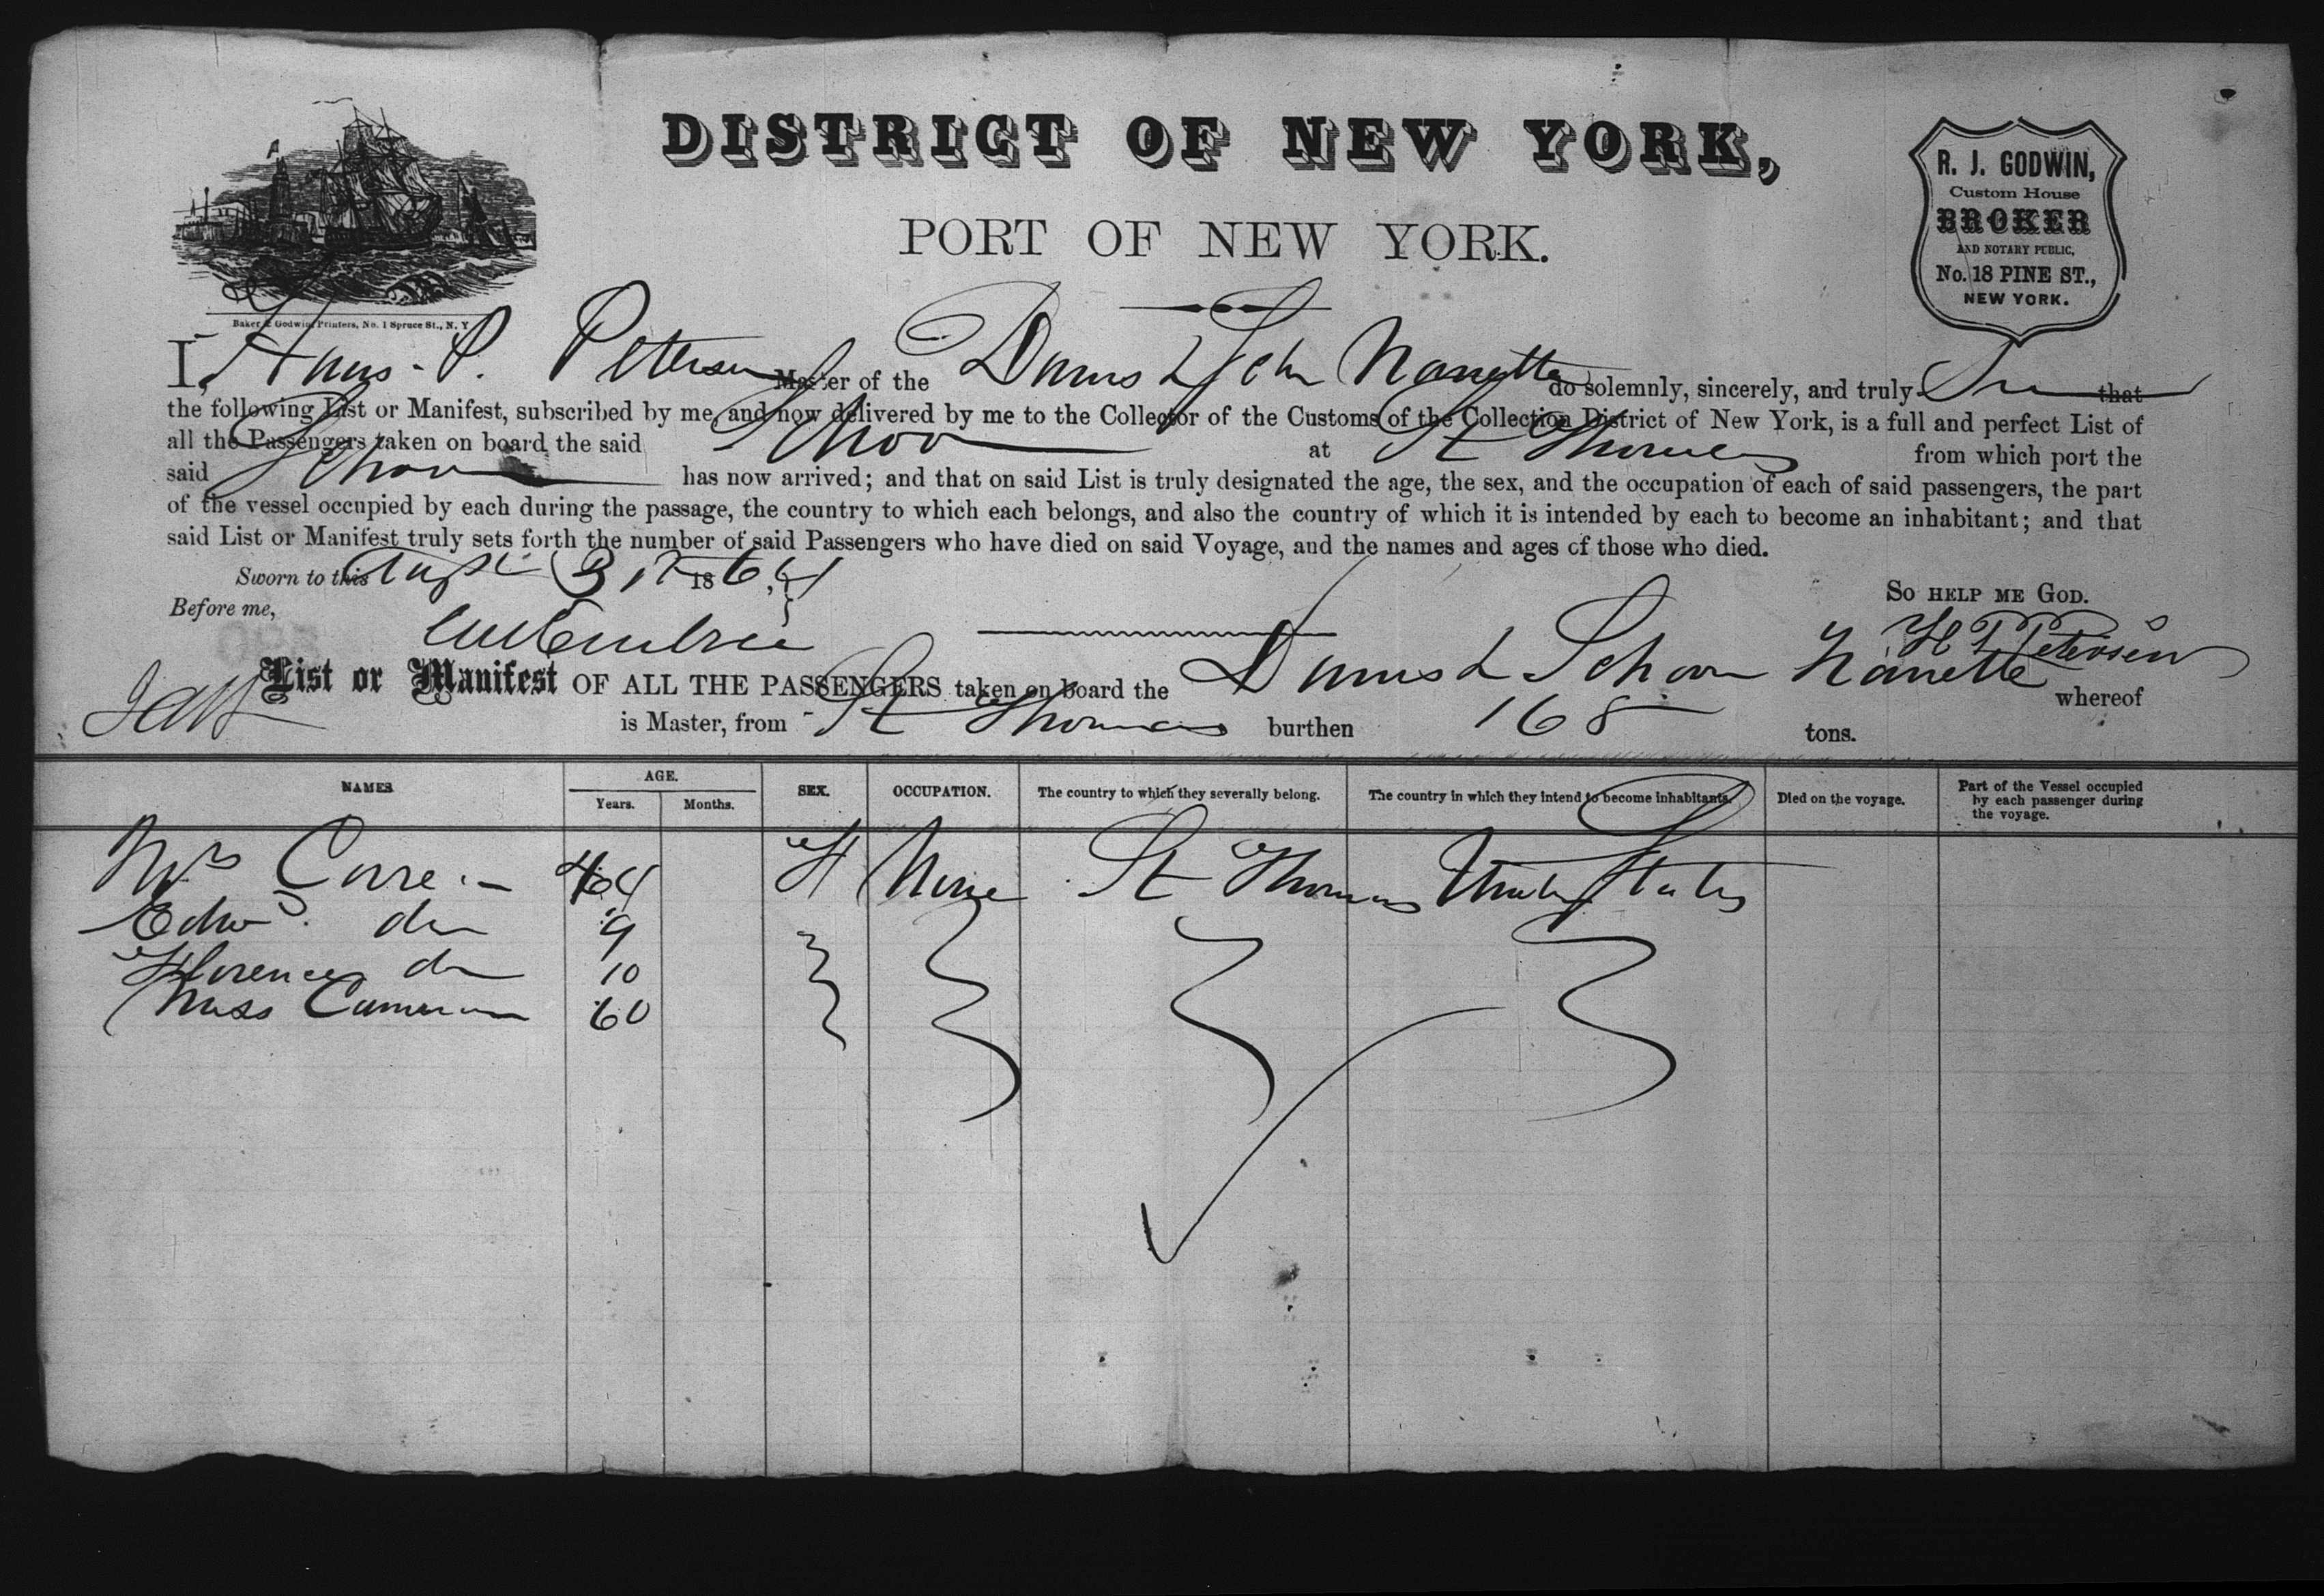 DISTRICT OF NEW YORK,
PORT OF NEW YORK.
R. J. GODWIN,
Custom House
BROKER
AND NOTARY PUBLIC,
No. 18 PINE ST.,
NEW YORK.
Baker & Godwin, Printers, No. 1 Spruce St., N. Y.
I, Hans P. Petersen Master of the Danish Schr Nanette do solemnly, sincerely, and truly that
the following List or Manifest, subscribed by me, and now delivered by me to the Collector of the Customs of the Collection District of New York, is a full and perfect List of
all the Passengers taken on board the said Schoor at St Thomas from which port the
said Schoor has now arrived; and that on said List is truly designated the age, the sex, and the occupation of each of said passengers, the part
of the vessel occupied by each during the passage, the country to which each belongs, and also the country of which it is intended by each to become an inhabitant; and that
said List or Manifest truly sets forth the number of said Passengers who have died on said Voyage, and the names and ages of those who died.
Sworn to this 31st 1864
SO HELP ME GOD.
Before me,
H P Petersen
List or Manifest OF ALL THE PASSENGERS taken on board the Danish Schoor Nanette whereof
is Master, from St Thomas burthen 168 tons.
NAMES AGE. Years. Months. SEX. OCCUPATION. The country to which they severally belong. The country in which they intend to become inhabitants. Died on the voyage. Part of the Vessel occupied by each passenger during the voyage.
Mrs Corre F None St Thomas United States
Edwd do 9
Florence do 10
Miss Cameron 60